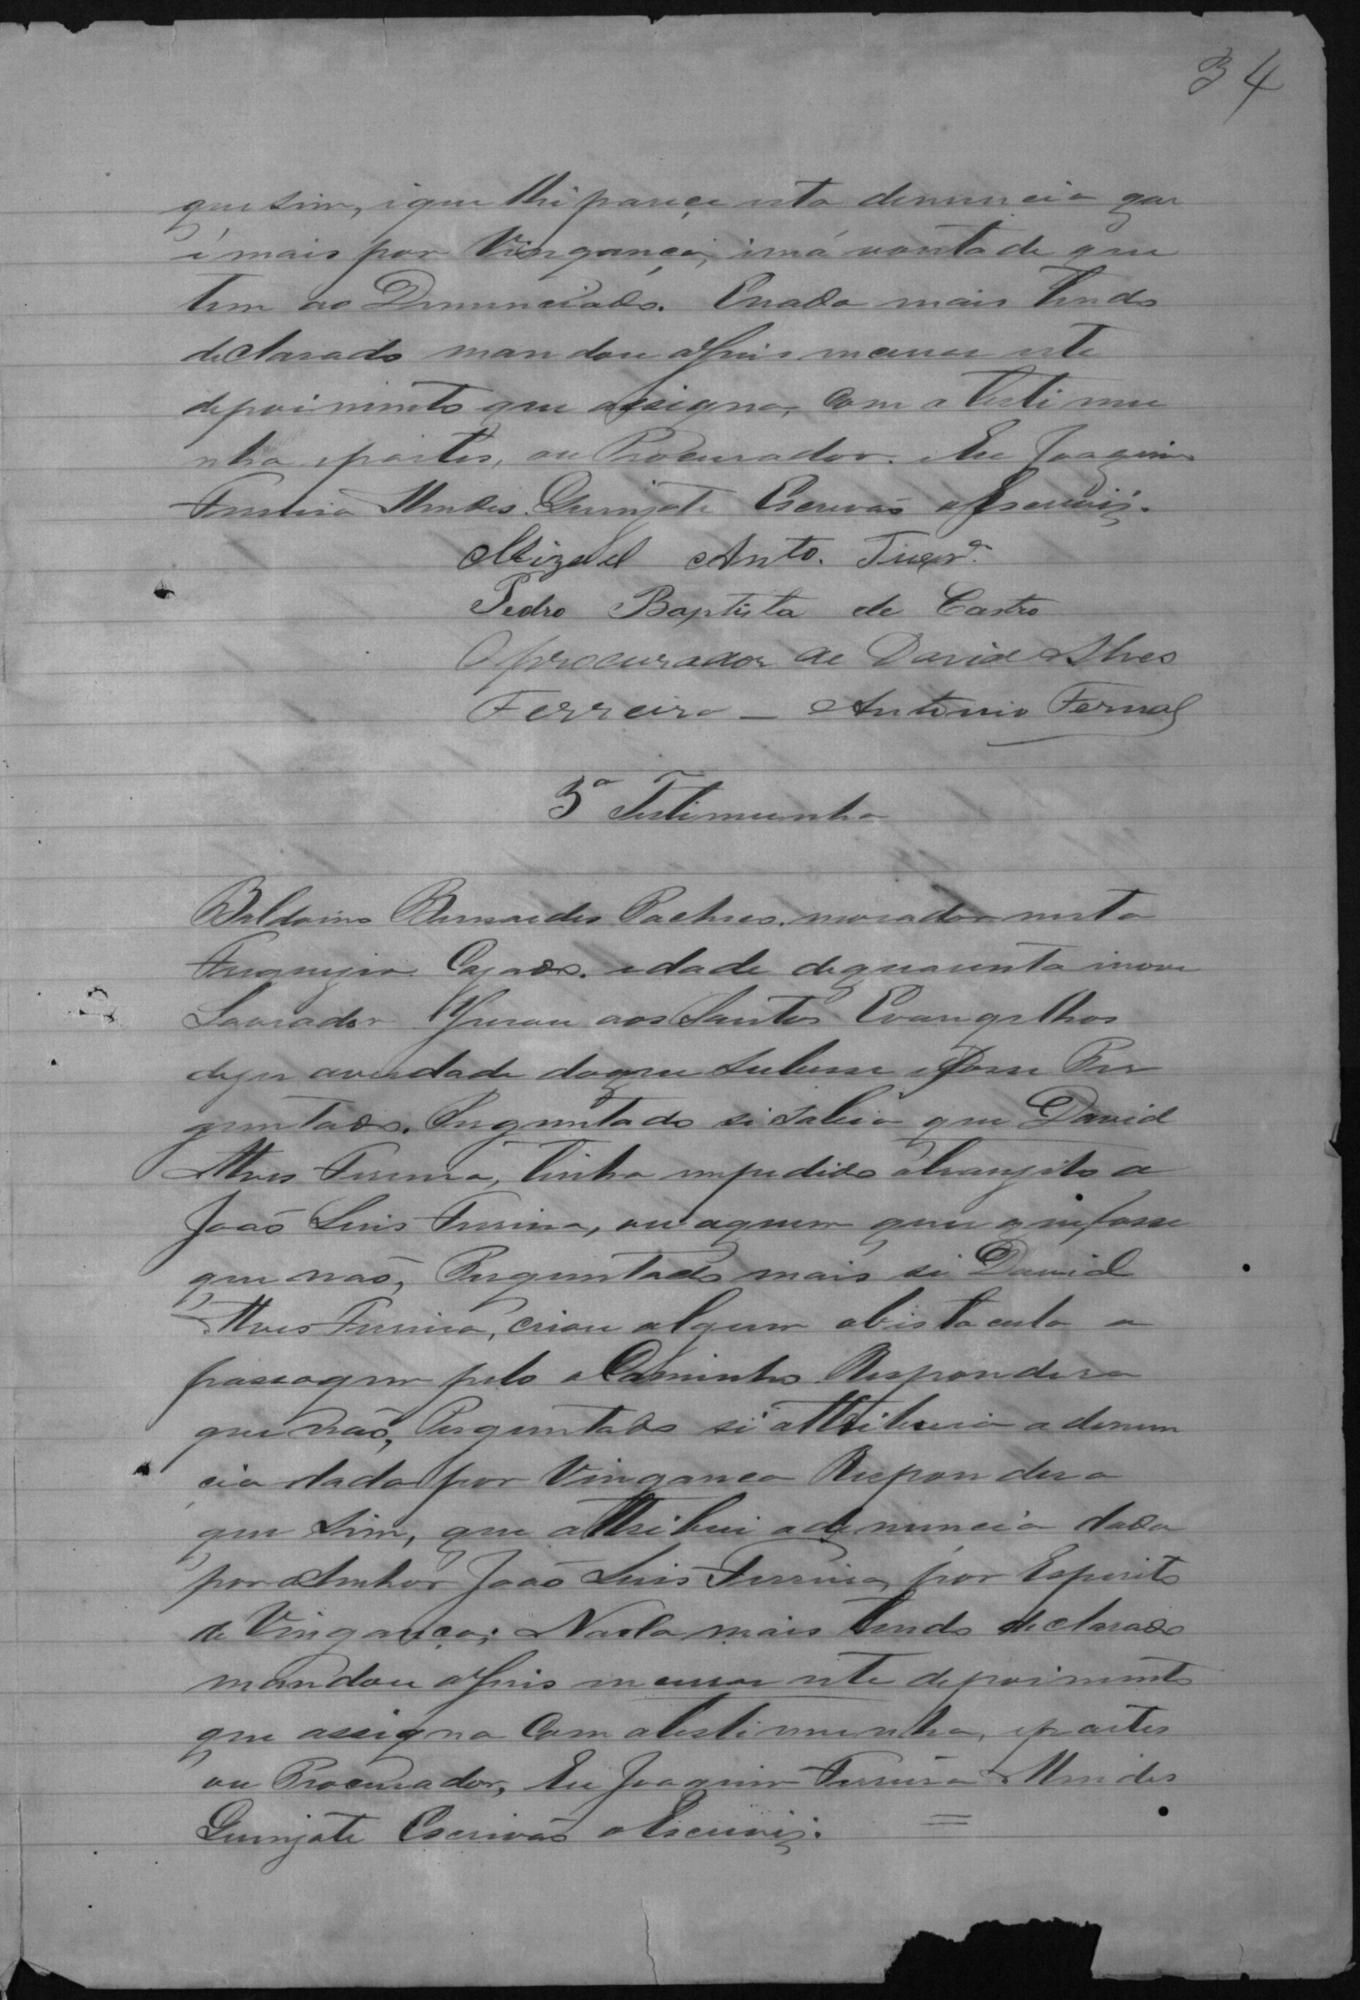 34
que sim, i que lhi pareçe esta denuncia que
é mais por Vingança, i má vontade que
tem ao Denunciado. Enada mais tendo
declarado mandou o Juis incerrar este
depoimento que assigna, com a testimu
nha epartes, ou Procurador. Eu Joaquim
Ferreira Mendes Escrivaõ o Escreviz.
Mizael Anto.
Pedro Baptista de Castro
O procurador de David Alves
Ferreira — Antonio
3ª Testimunha
Baldoino Bernardes Pacheco, morador nesta
Freguezia Cazado. edade de quarenta inove
Lavrador Jurou aos Santos Evangelhos
dizer averdade doque Subesse efosse Per
guntado. Perguntado si sabia que David
Alves Ferreira, tinha impedido o tranzito a
Joaõ Luis Ferreira, ou aquem quer que fosse
que naõ, Perguntado mais si David
Alves Ferreira, criou algum obistaculo a
passagem pelo o Caminho Respondera
que não, Perguntado si attribuia a denun
cia dada por Vingança Respondera
que Sim, que attribui a denuncia dada
por o Senhor Joaõ Luis Ferreira, por Espirito
de Vingança; Nada mais tendo declarado
mandou o Juis incerrar este depoimento
que assigna Com a testimunha, epartes
ou Procurador, Eu Joaquim Ferreira Mendes
Escrivaõ o Escreviz. =